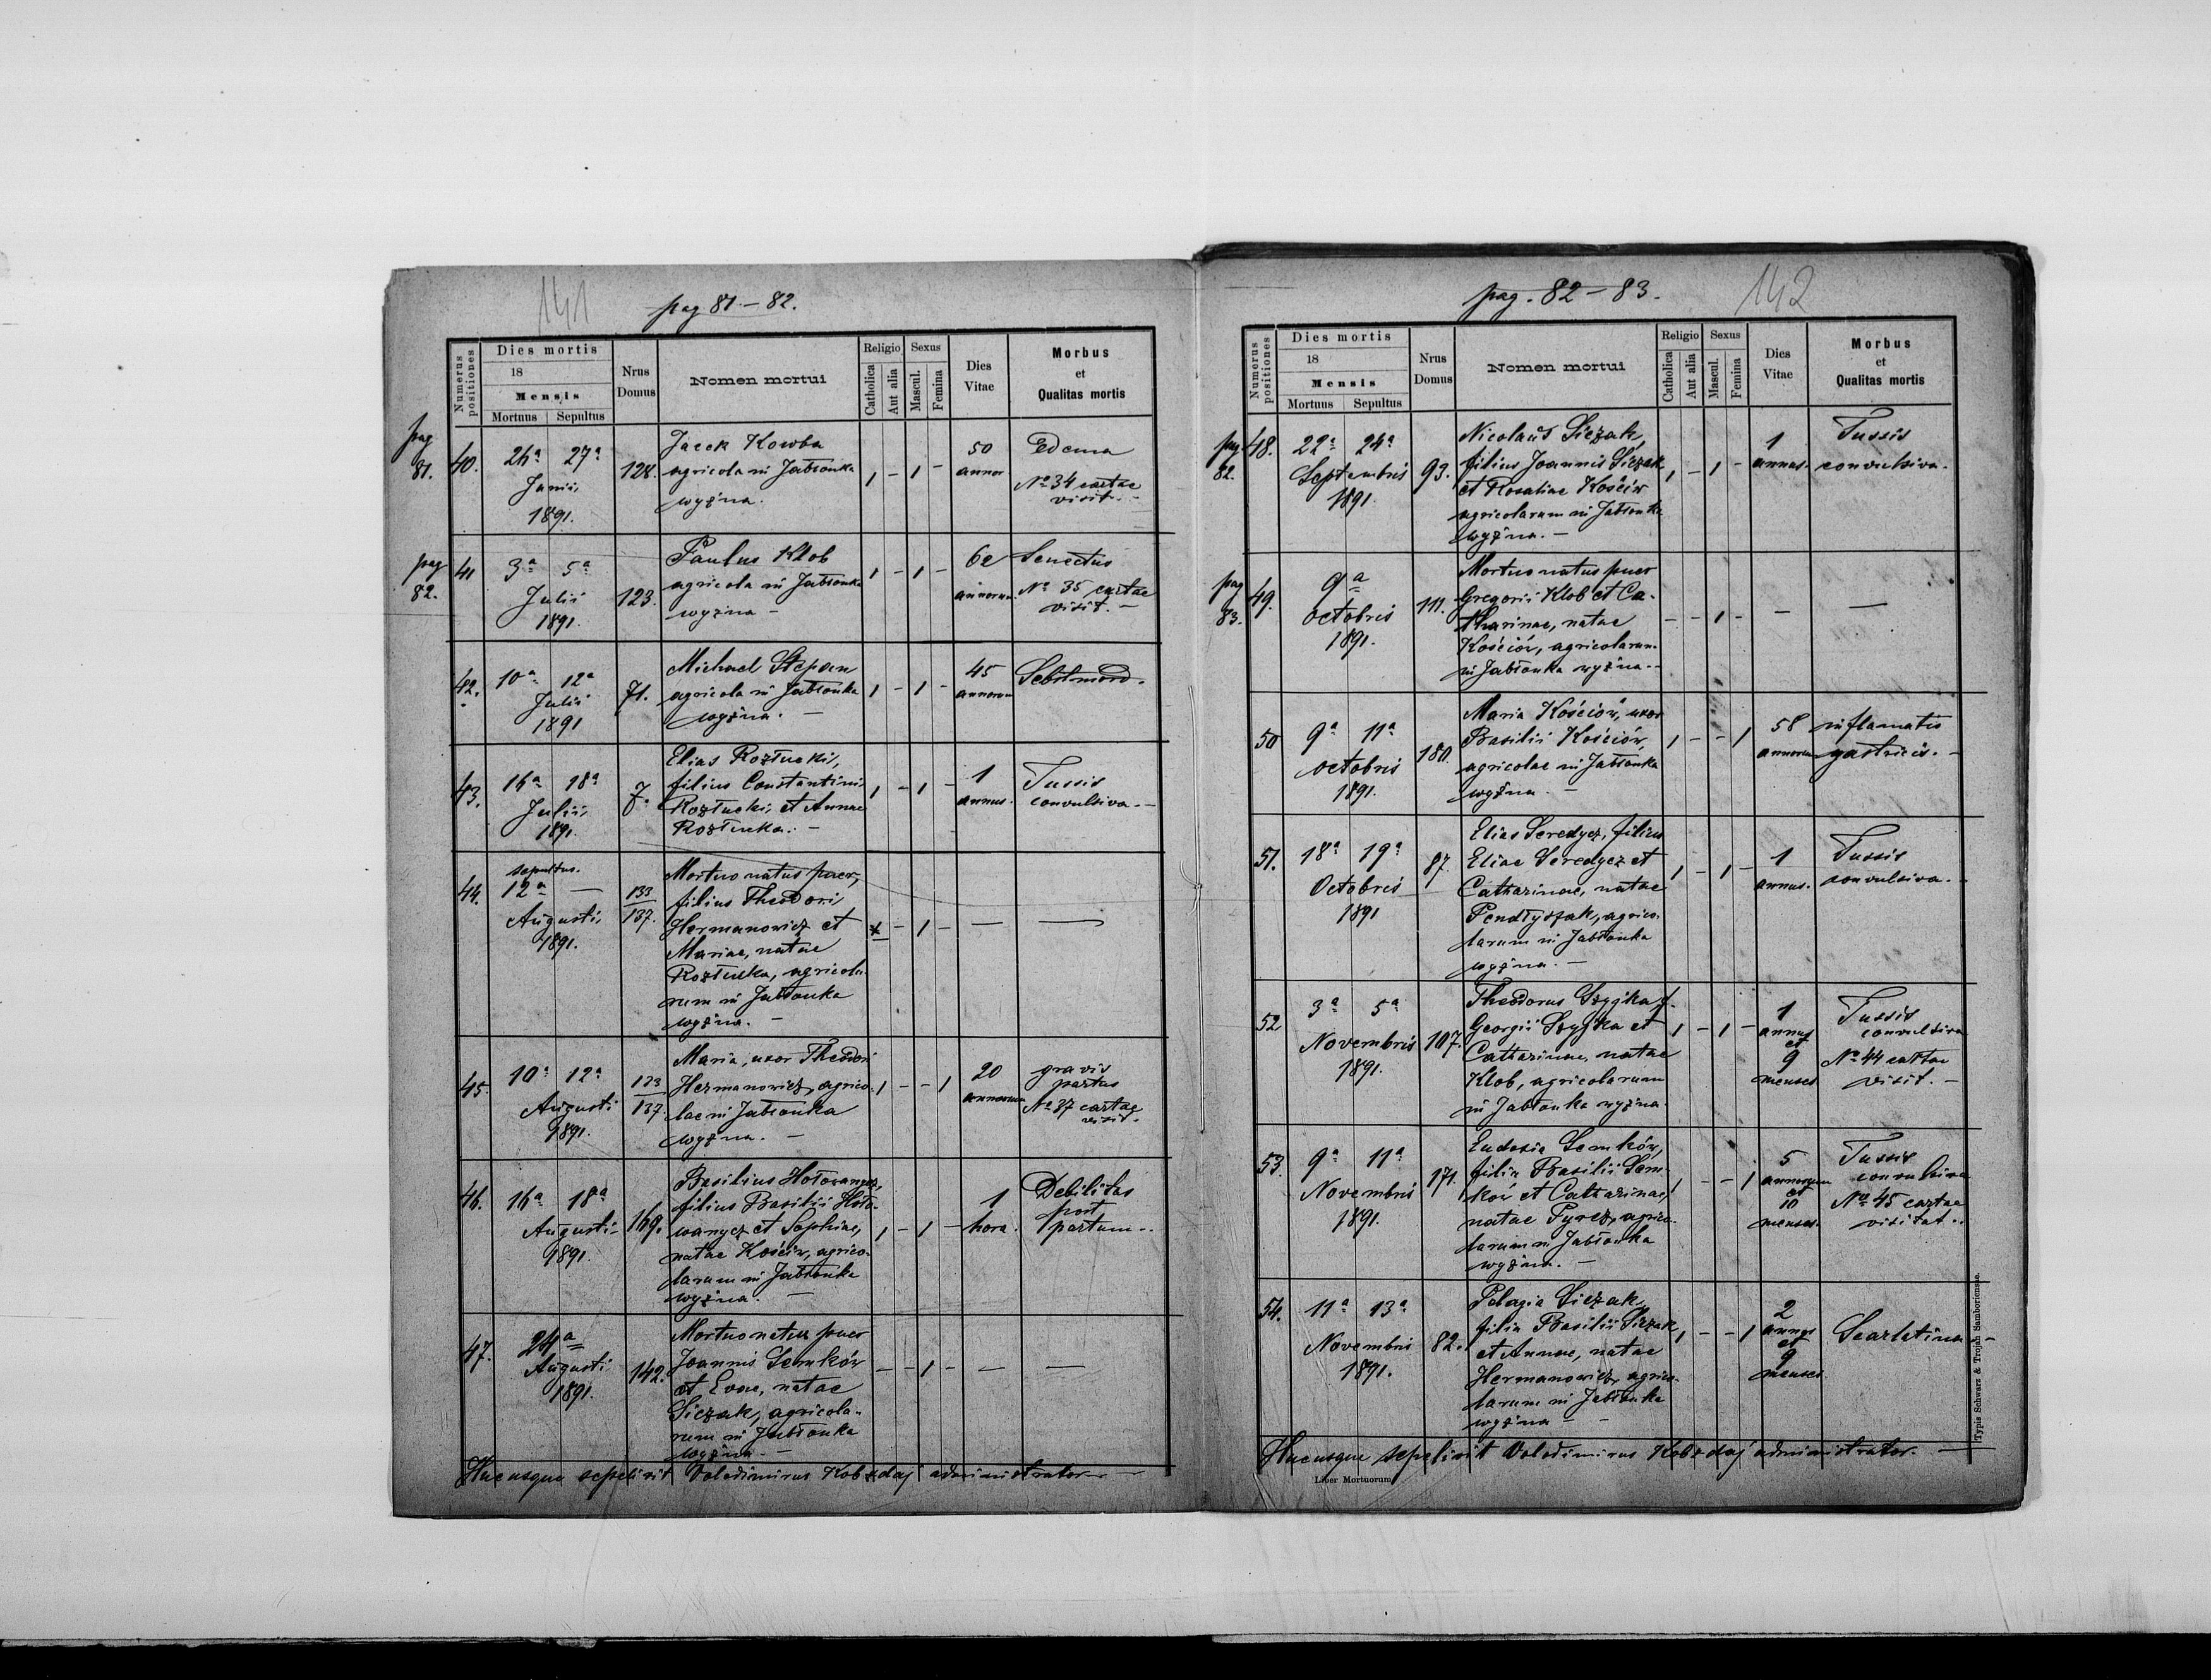 141
pag 81 – 82.
Numerus positiones
Dies mortis
18
Mensis
Mortuus Sepultus
Nrus Domus
Nomen mortui
Religio
Catholica
Aut alia
Sexus
Mascul.
Femina
Dies Vitae
Morbus et Qualitas mortis
pag 81.
40. 26ª 27ª Junii, 1891. 128.
Jacek Kowba
agricola in Jabłonka
wyżna.
1 – 1 –
50 annor
Edema
Nº 34 cartae
visit. –
pag 82.
41 3ª 5ª Julii 1891. 123.
Paulus Kłob
agricola in Jabłonka
wyżna –
1 – 1 –
62 annorum
Senectus
Nº 35 cartae
visit. –
42. 10ª 12ª Julii 1891 71.
Michael Stepan
agricola in Jabłonka
wyżna. –
1 – 1 –
45 annorum
Sebstmord.
43. 16ª 18ª Julii, 1891. 7.
Elias Roztucki,
filius Constantini
Roztucki, et Annae
Roztucka. –
1 – 1 –
1 annus.
Tussis
convulsiva. –
44. sepultus. 12ª — Augusti, 1891. 133/137.
Mortuo natus puer,
filius Theodori
Hermanowicz et
Mariae, natae
Roztucka, agricola-
rum in Jabłonka
wyżna. –
– 1 – — —
45. 10ª 12ª Augusti 1891. 133/137.
Maria, uxor Theodori
Hermanowicz, agrico-
lae in Jabłonka
wyżna. –
1 – – 1
20 annorum
gravis
partus
Nº 37 cartae
visit.
46. 16ª 18ª Augusti 1891. 169.
Basilius Hołowanycz,
filius Basilii Hoło-
wanycz et Sophiae,
natae Kościów, agrico-
larum in Jabłonka
wyżna. –
1 – 1 –
1 hora.
Debilitas
post
partum..
47. 24ª Augusti 1891. 142.
Mortuo natus puer
Joannis Semków
et Evae, natae
Siczak, agricola-
rum in Jabłonka
wyżna. –
– – 1 – — —
Hucusque sepelivit Volodimirus Kobzdaj administrator. –
pag. 82 – 83.
142
Numerus positiones
Dies mortis
18
Mensis
Mortuus Sepultus
Nrus Domus
Nomen mortui
Religio
Catholica
Aut alia
Sexus
Mascul.
Femina
Dies Vitae
Morbus et Qualitas mortis
pag. 82.
48. 22ª 24ª Septembris 1891. 93.
Nicolaus Siczak,
filius Joannis Siczak
et Rosaliae Kościów
agricolarum in Jabłonka
wyżna. –
1 – 1 –
1 annus.
Tussis
convulsiva.
pag 83.
49. 9ª octobris 1891. 111.
Mortuo natus puer
Gregorii Kłob et Ca-
tharinae, natae
Kościów, agricolarum
in Jabłonka wyżna. –
– – 1 – — —
50 9ª 11ª octobris 1891. 180.
Maria Kościów, uxor
Basilii Kościów,
agricolae in Jabłonka
wyżna. –
1 – – 1
58 annorum
inflamatio
gastricis. –
51. 18ª 19ª Octobris 1891 87.
Elias Seredycz, filius
Eliae Seredycz et
Catharinae, natae
Pendłyszak, agrico-
larum in Jabłonka
wyżna. –
1 – 1 –
1 annus.
Tussis
convulsiva. –
52 3ª 5ª Novembris 1891. 107.
Theodorus Szyjka f.
Georgii Szyjka et
Catharinae, natae
Kłob, agricolarum
in Jabłonka wyżna.
1 – 1 –
1 annus et 9 menses
Tussis
convulsiva
Nº 44 cartae
visit. –
53. 9ª 11ª Novembris 1891. 171.
Eudosia Semków,
filia Basilii Sem-
ków et Catharinae,
natae Pyrcz, agrico-
larum in Jabłonka
wyżna. –
1 – – 1
5 annorum et 10 menses.
Tussis
convulsiva
Nº 45 cartae
visitat..
54. 11ª 13ª Novembris 1891. 82.
Pelagia Siczak,
filia Basilii Siczak
et Annae, natae
Hermanowicz, agrico-
larum in Jabłonka
wyżna –
1 – – 1
2 annos et 9 menses
Scarlatina –
Hucusque sepelivit Volodimirus Kobzdaj administrator. –
Liber Mortuorum
Typis Schwarz & Trojan Samboriensae.